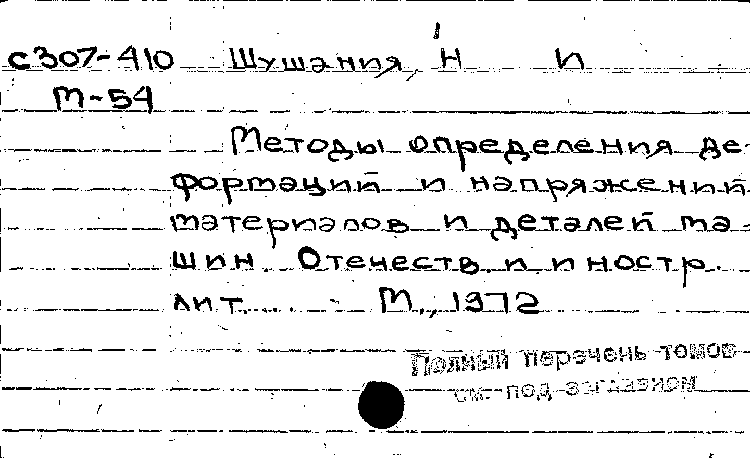 с307-410 Шушания, Н И
М-54
Методы определения де-
формаций и напряжений
материалов и деталей ма-
шин. Отечеств. и иностр.
лит. М., 1972
Полный перечень томов
см. под заглавием